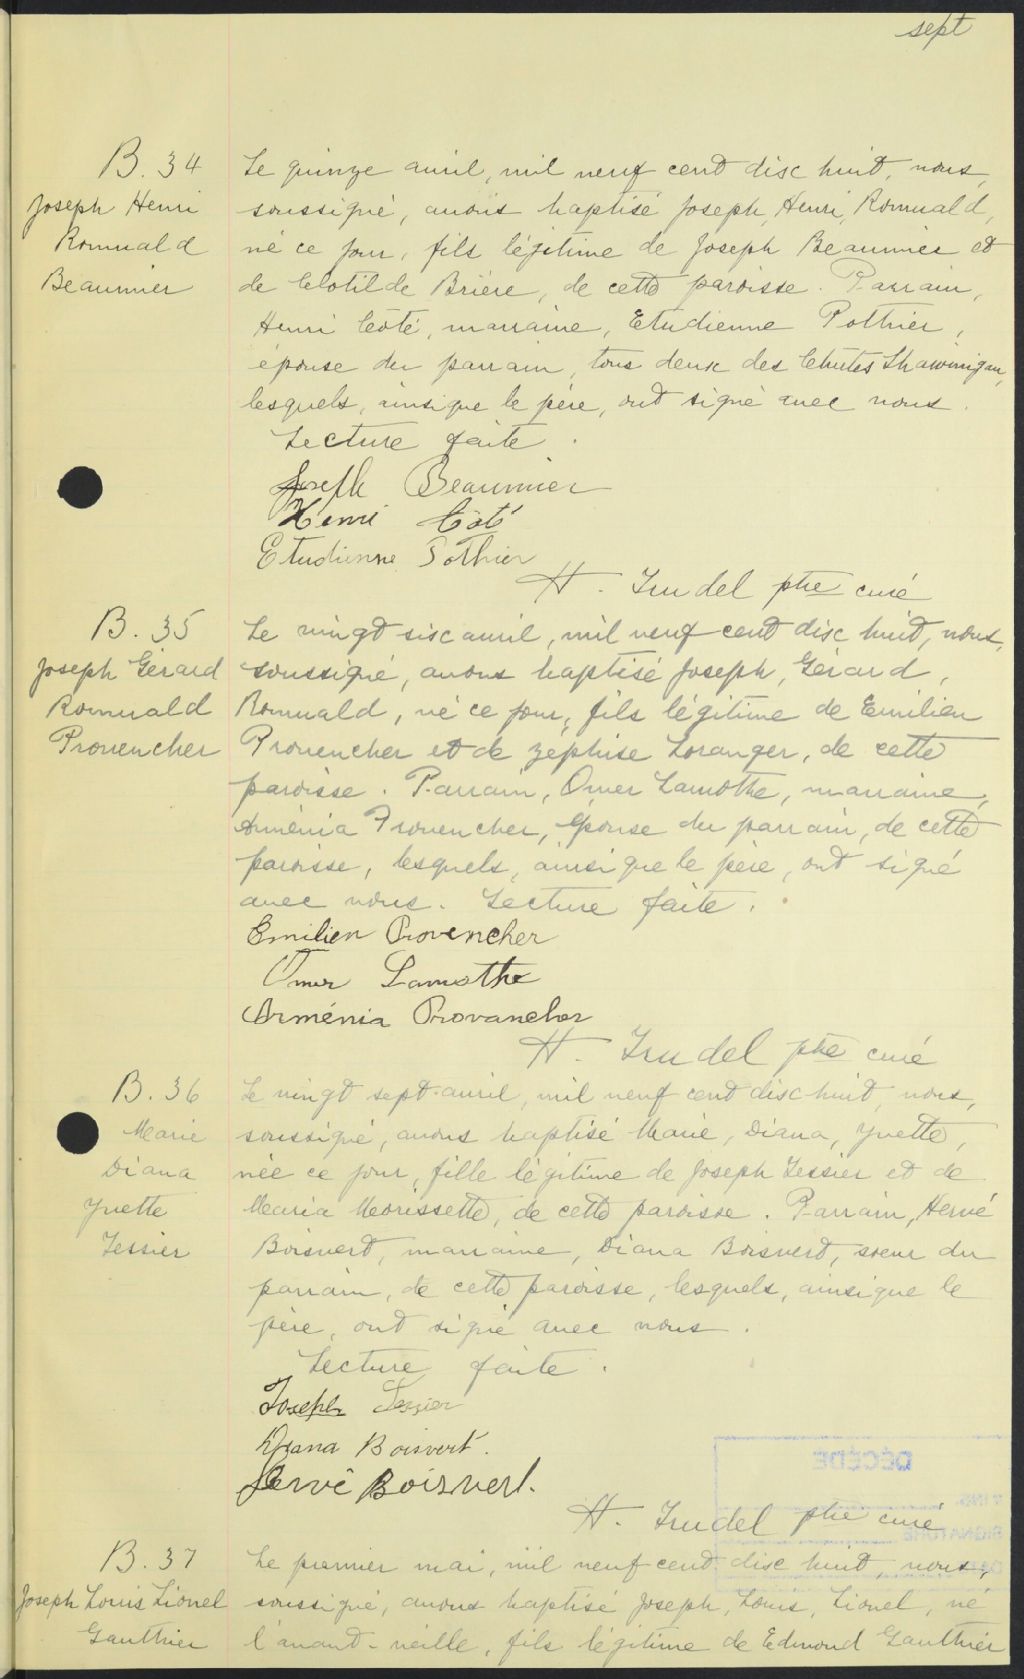 sept
B. 34
Joseph Henri
Romuald
Beaumier
Le quinze avril, mil neuf cent dix huit, nous,
soussigné, avons baptisé Joseph, Henri, Romuald,
né ce jour, fils légitime de Joseph Beaumier et
de Clotilde Brière, de cette paroisse. Parrain,
Henri Côté, marraine, Etudienne Pothier,
épouse du parrain, tous deux des Chutes Shawinigan,
lesquels, ainsi que le père, ont signé avec nous.
Lecture faite.
Joseph Beaumier
Henri Côté
Etudienne Pothier
H. Trudel ptre curé
B. 35
Joseph Gérard
Romuald
Provencher
Le vingt six avril, mil neuf cent dix huit, nous,
soussigné, avons baptisé Joseph, Gérard,
Romuald, né ce jour, fils légitime de Emilien
Provencher et de Zéphise Loranger, de cette
paroisse. Parrain, Omer Lamothe, marraine,
Arménia Provencher, épouse du parrain, de cette
paroisse, lesquels, ainsi que le père, ont signé
avec nous. Lecture faite.
Emilien Provencher
Omer Lamothe
Arménia Provancher
H. Trudel ptre curé
B. 36
Marie
Diana
Yvette
Tessier
Le vingt sept avril, mil neuf cent dix huit, nous,
soussigné, avons baptisé Marie, Diana, Yvette,
née ce jour, fille légitime de Joseph Tessier et de
Maria Morissette, de cette paroisse. Parrain, Hervé
Boisvert, marraine, Diana Boisvert, soeur du
parrain, de cette paroisse, lesquels, ainsi que le
père, ont signé avec nous.
Lecture faite.
Joseph Tessier
Diana Boisvert.
Hervé Boisvert.
H. Trudel ptre curé
DÉCÉDÉ
SIGNATURE
B. 37
Joseph Louis Lionel
Gauthier
Le premier mai, mil neuf cent dix huit, nous,
soussigné, avons baptisé Joseph, Louis, Lionel, né
l'avant-veille, fils légitime de Edmond Gauthier